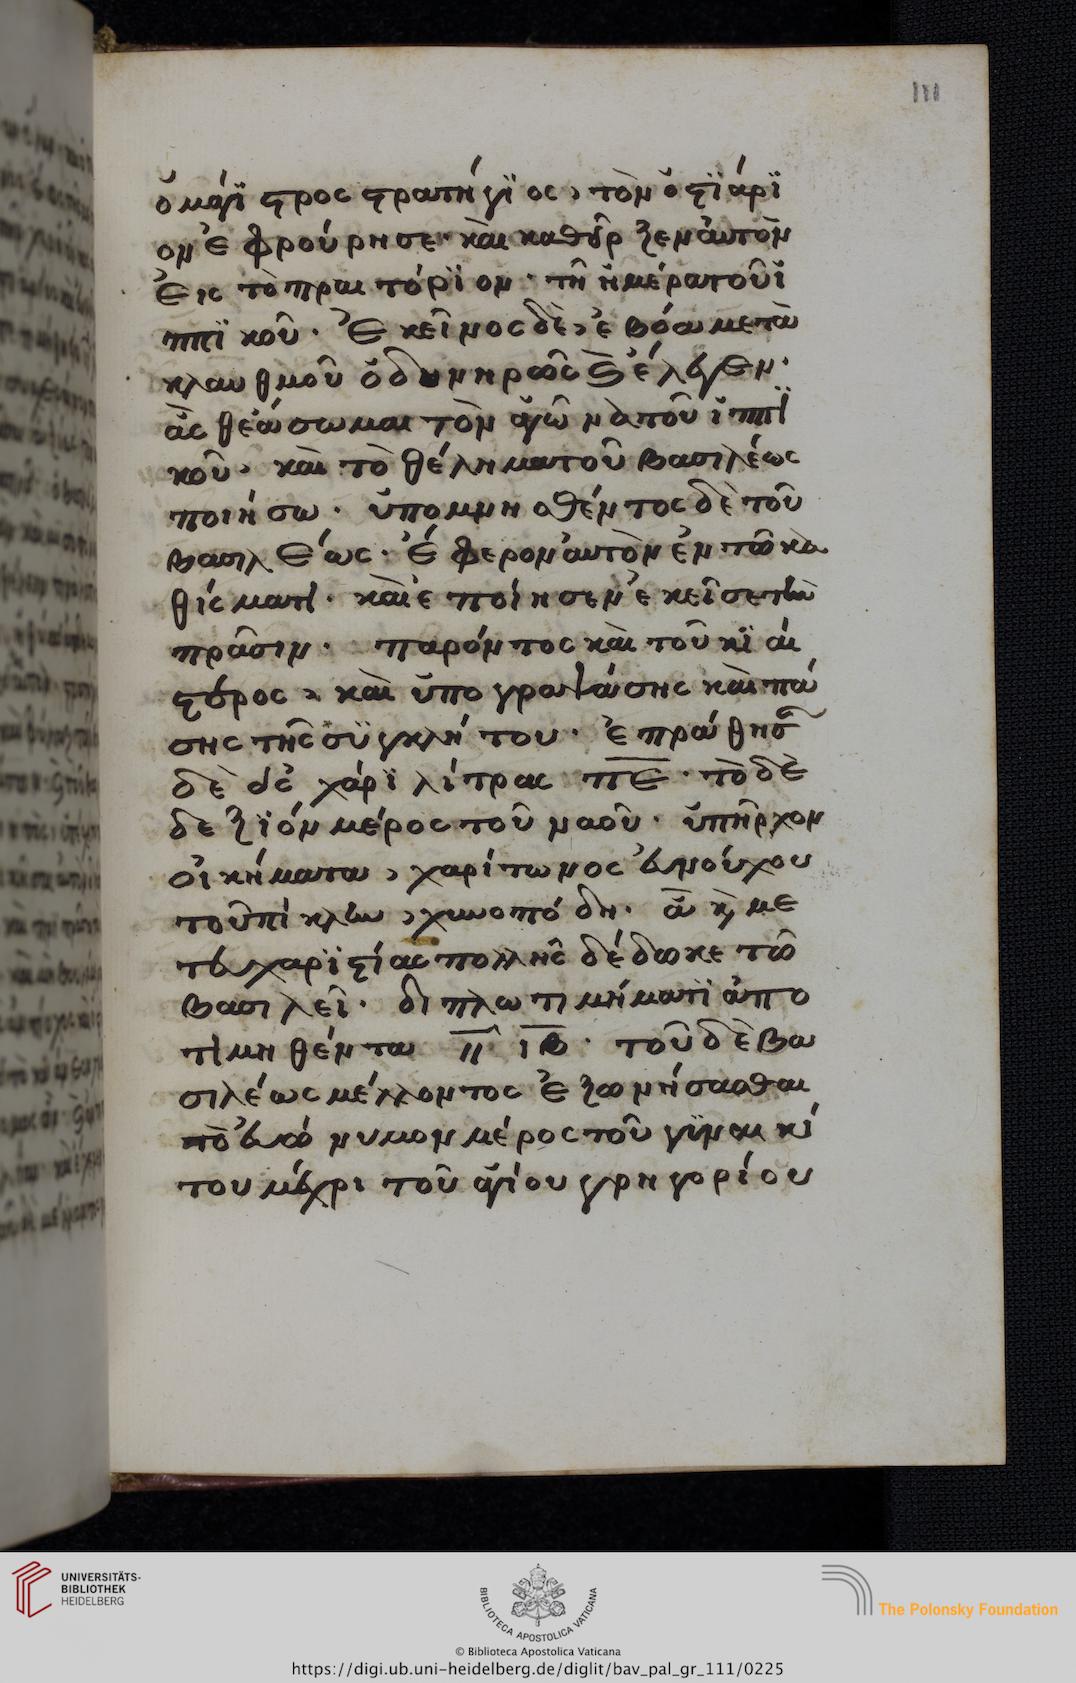 111
ὁ μάγϊστρος στρατήγϊος, τὸν ὀστϊάρϊ
ον ἐφρούρησε· καὶ καθεῖρξεν ἀυτὸν
ἐις τὸ πραιτόρϊον· τῆ ἡμέρα τοῦ ἱ
ππϊκοῦ. Ἐκεῖνος δὲ, ἐβόα μετὰ
κλαυθμοῦ ὀδυνηρῶς ἔλεγεν·
ἃς θεάσωμαι τὸν ἀγῶνα τοῦ ἱππϊ
κοῦ· καὶ τὸ θέλημα τοῦ βασιλέως
ποιήσω. ὑπομνησθέντος δὲ τοῦ
βασιλέως· ἔφερον ἀυτὸν ἐν τῶ κα
θίσματι· καὶ ἐποίησεν ἐκεῖσε τὴν
πρᾶσιν. παρόντος καὶ τοῦ κϊαί
στορος, καὶ ὑπογραψάσης καὶ πά
σης τῆς συγκλήτου. ἐπράθησαν
δὲ χάρϊ λίτραι πε· τὸ δὲ
δεξϊὸν μέρος τοῦ ναοῦ· ὑπῆρχον
οἰκήματα, χαρίτωνος ἐυνούχου
τοῦ πίκλην, χηνοπόδη· ἃ κ με
τευχαρϊστίας πολλῆς δέδωκε τῶ
βασιλεῖ· διπλῶ τιμήματϊ ἀπο
τιμηθέντα ιβ· τοῦ δὲ βα
σιλέως μέλλοντος ἐξωνήσασθαι
τὸ ἐυώνυμον μέρος τοῦ γϋναικί
του μέχρι τοῦ ἁγίου γρηγορίου
UNIVERSITÄTS-
BIBLIOTHEK
HEIDELBERG
BIBLIOTECA APOSTOLICA VATICANA
The Polonsky Foundation
© Biblioteca Apostolica Vaticana
https://digi.ub.uni-heidelberg.de/diglit/bav_pal_gr_111/0225